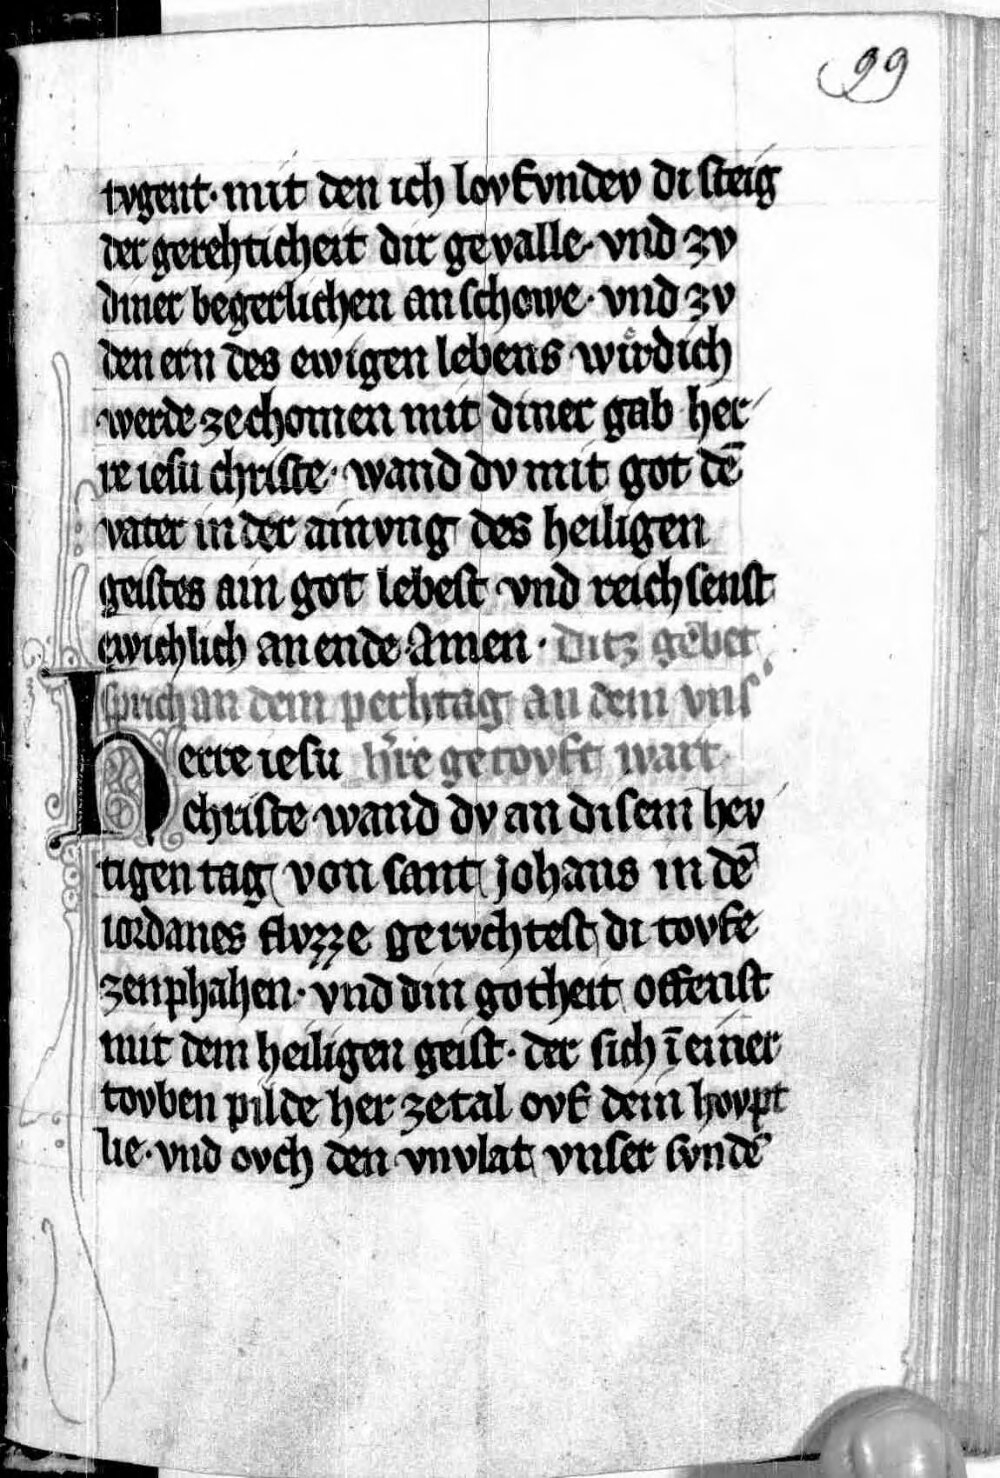 99
tvgent· mit den ich lovfvndev di steig
der gerehticheit dir gevalle· vnd zv
diner begerlichen anschowe· vnd zv
den ern des ewigen lebens wirdich
werde zechomen mit diner gab her
re iesu christe· wand dv mit got dē
vater in der ainvng des heiligen
geistes ain got lebest vnd reichsenst
ewichlich an ende· Amen· Ditz gebet
sprich an dem perhtag an dem vns'
herre iesu h're getovft wart
christe wand dv an disem hev
tigen tag von sant Johans in dē
iordanes flvzze gervchtest di tovfe
zenphahen· vnd din gotheit offenst
mit dem heiligen geist· der sich ī einer
tovben pilde her zetal ovf dem hovpt
lie· vnd ovch den vnvlat vnser svndē